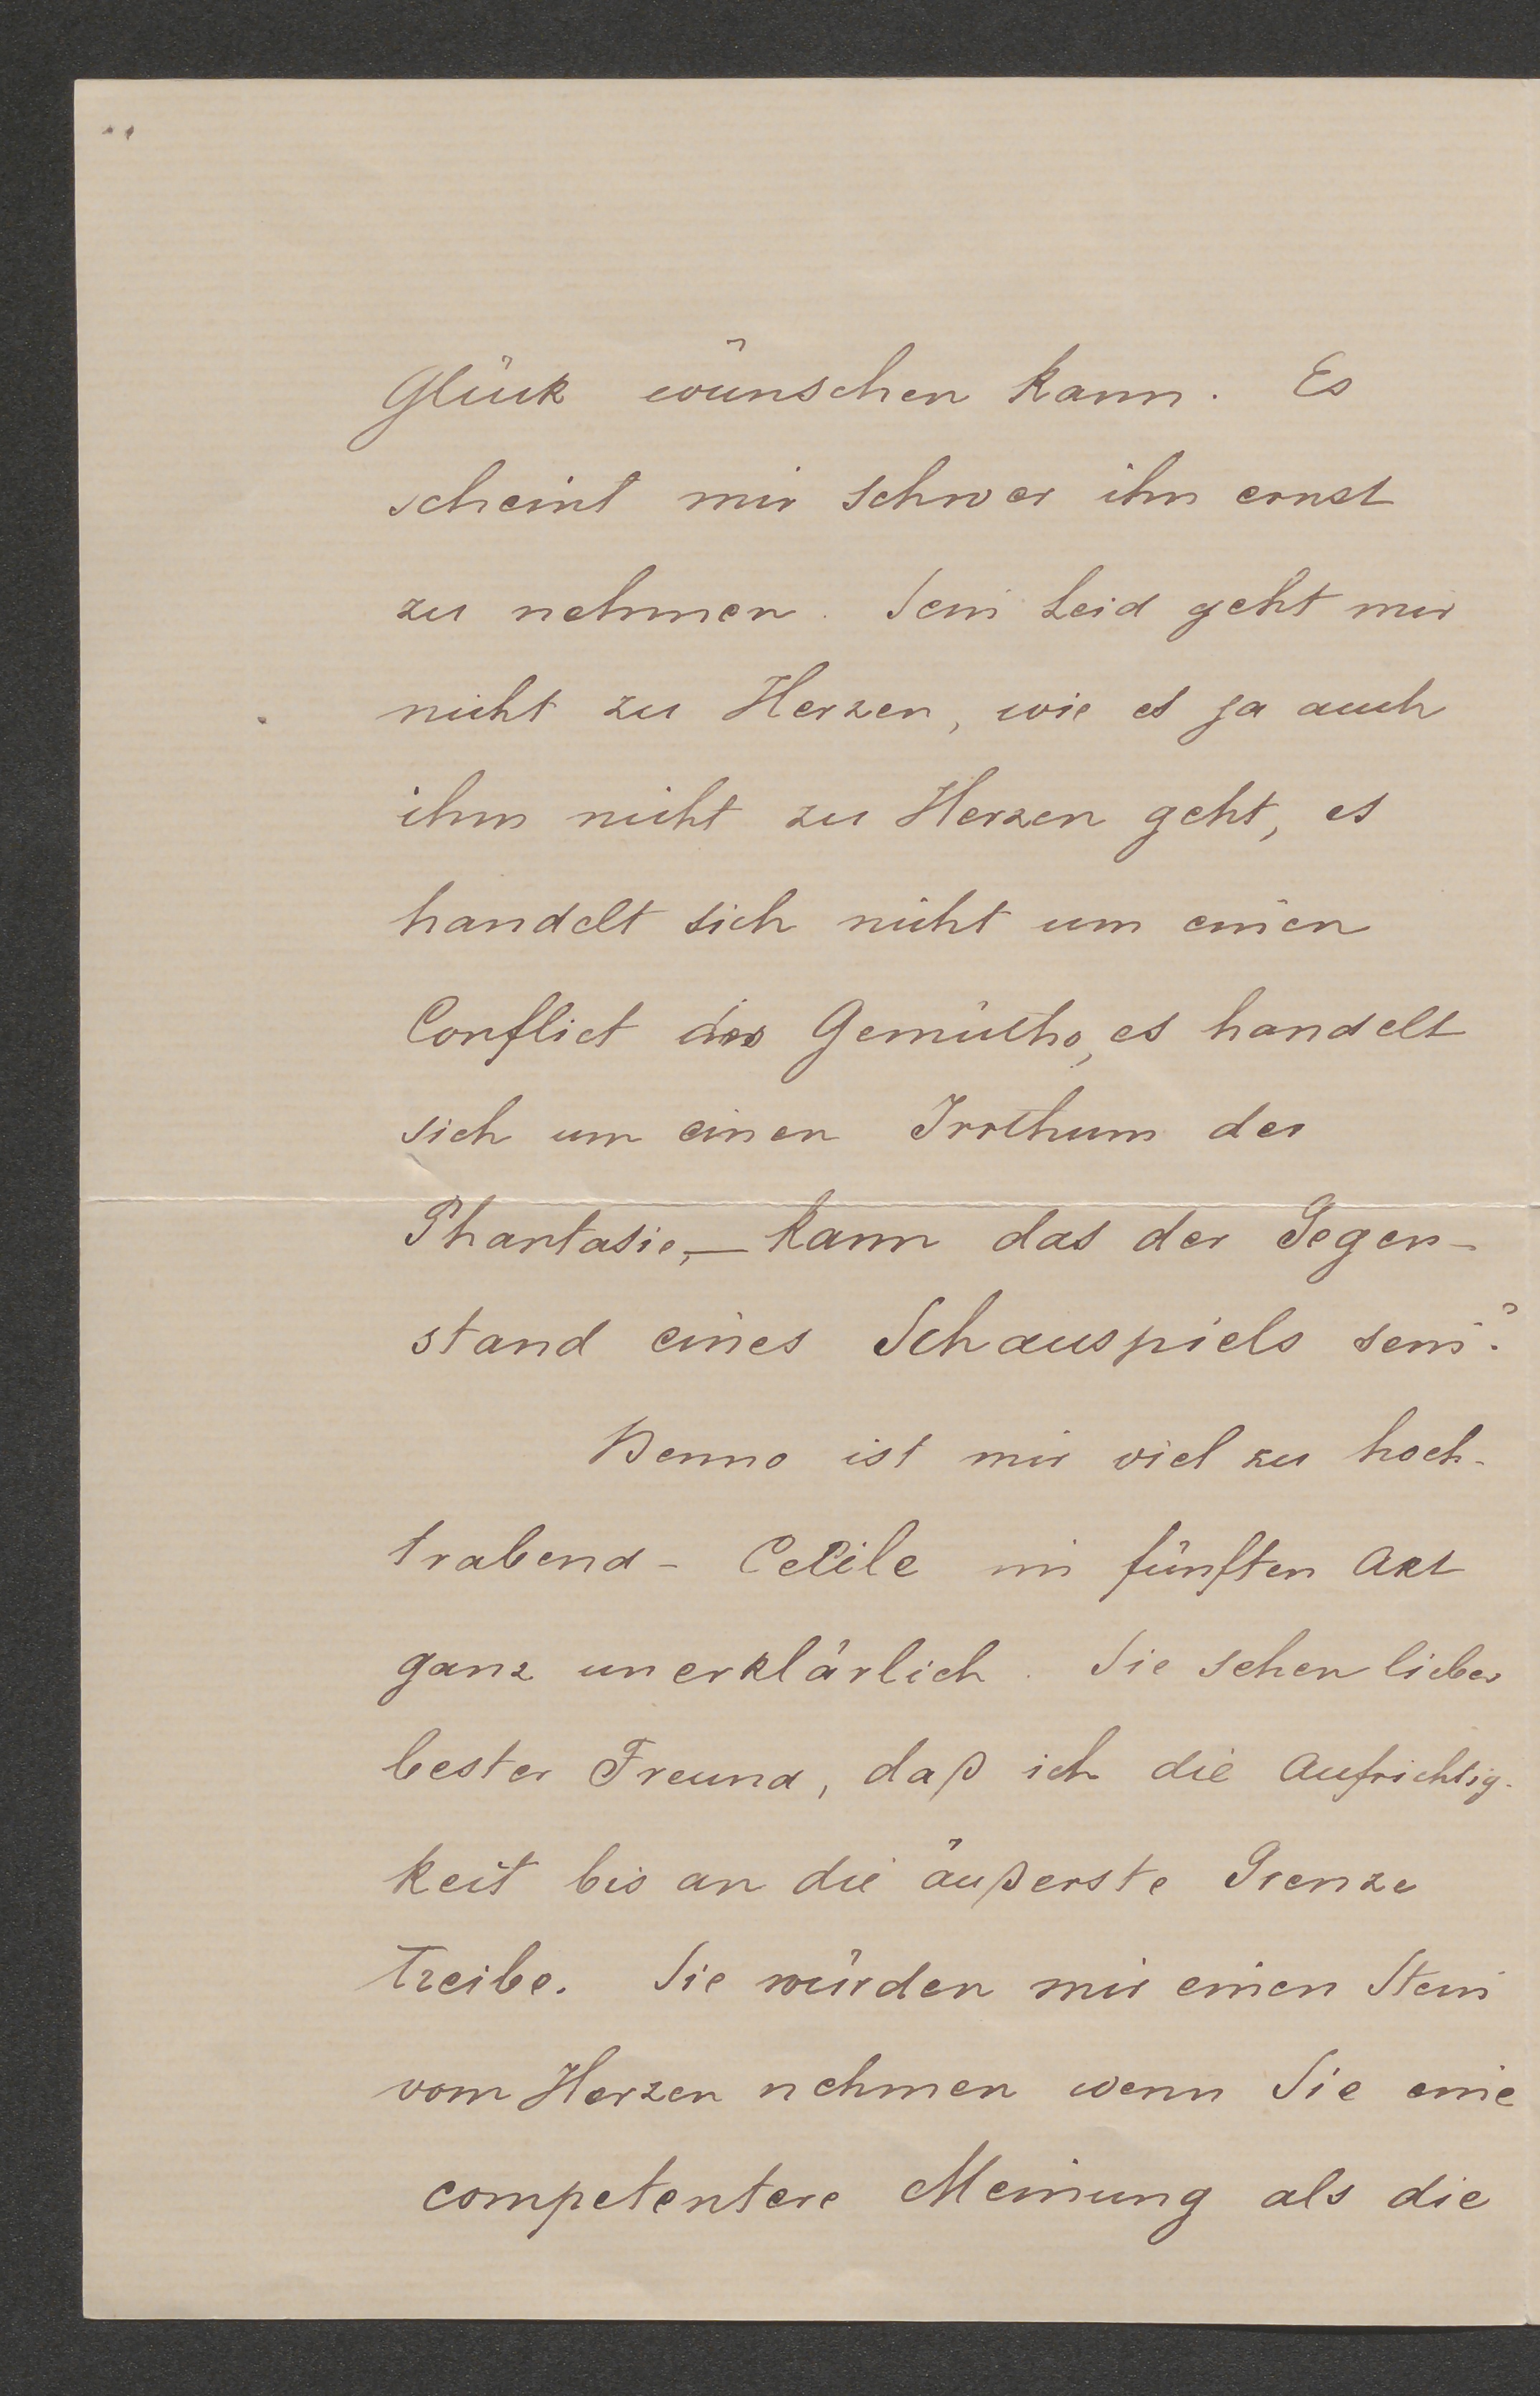 Glück wünschen kann. Es
scheint mir schwer ihn ernst
zu nehmen. Sein Leid geht mir
nicht zu Herzen, wie es ja auch
ihm nicht zu Herzen geht, es
handelt sich nicht um einen
Conflict des Gemüths, es handelt
sich um einen Irrthum der
Phantasie, – kann das der Gegen-
stand eines Schauspiels sein?
Benno ist mir viel zu hoch-
trabend – Cecile im fünften Akt
ganz unerklärlich. Sie sehen lieber
bester Freund, daß ich die Aufrichtig-
keit bis an die äußerste Grenze
treibe. Sie würden mir einen Stein
vom Herzen nehmen wenn Sie eine
competentere Meinung als die